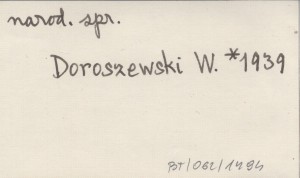 narod. spr.
Doroszewski W. *1939
BT/062/1494